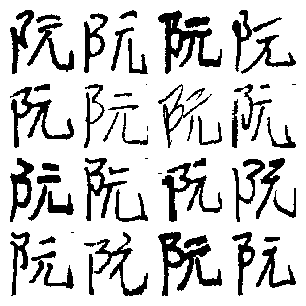 阮阮阮阮
阮阮阮阮
阮阮阮阮
阮阮阮阮